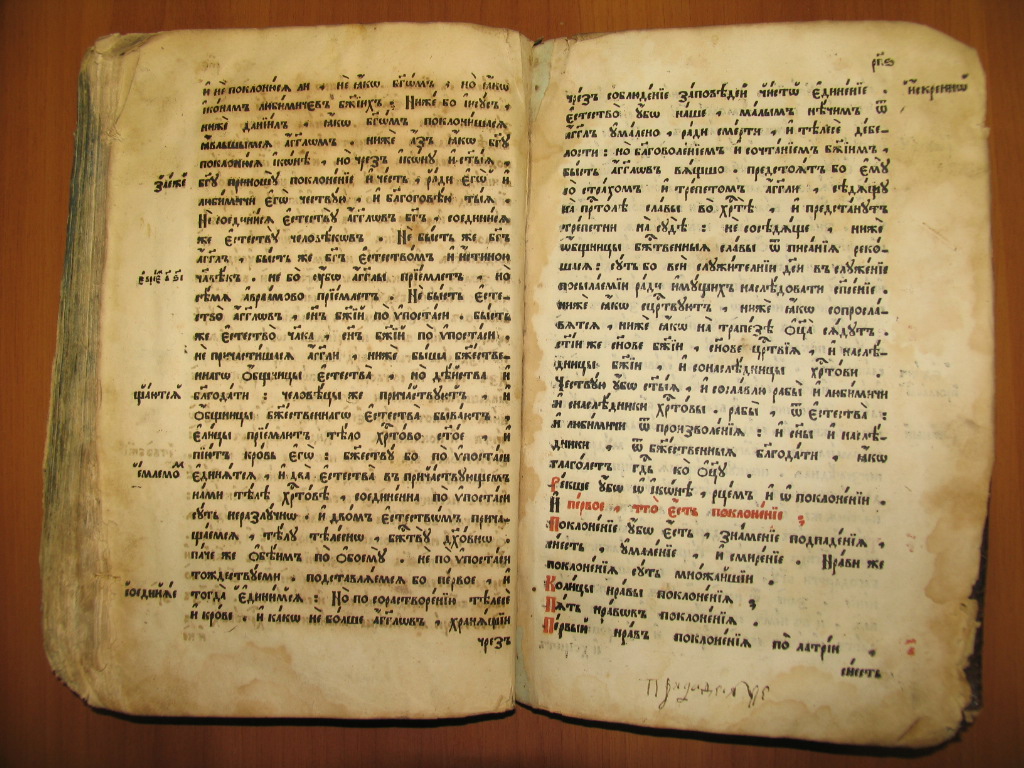 и҆ не поклони́сѧ и҆́ли , не ꙗ҆́кѡ бг҃ѡмъ , но ꙗ҆́кѡ
і҆ко́намъ люби́мичєвъ бж҃їихъ : Ниже́ бо і҆исꙋ́съ ,
ниже́ данїи́лъ , ꙗ҆́кѡ бг҃ѡмъ поклони́шасѧ
ꙗ҆вльшымсѧ а҆́гг҃лѡмъ . ниже́ а҆́зъ ꙗ҆́кѡ бг҃ꙋ
поклони́сѧ і҆ко́нѣ , но чрезъ і҆ко́нꙋ и҆ ст҃ы́ѧ ,
бг҃ꙋ приношꙋ̀ поклоне́нїе и҆ че́сть , ра́ди є҆гѡ̀ и҆
люби́мичи є҆гѡ̀ че́ствꙋю , и҆ благоговѣ́ю ты́ѧ .
Не соедини́сѧ є҆стествꙋ̀ а҆́гг҃лѡвъ бг҃ъ , соедини́сѧ
же є҆стествꙋ̀ человѣ́кѡвъ . Не бы́сть же бг҃ъ
а҆́гг҃лъ , бы́сть же бг҃ъ є҆стество́мъ и҆ и҆́стиною
чл҃вѣ́къ . не бо ᲂу҆̀бѡ а҆́гг҃лы прїе́млетъ , но
сѣ́мѧ а҆враа́мово прїе́млетъ . Не бы́сть є҆сте-
ство̀ а҆́гг҃лѡвъ , сн҃ъ бж҃їй по ѵ҆поста́си . бы́сть
же є҆стество̀ чл҃ка , сн҃ъ бж҃їй по ѵ҆поста́си ,
не причасти́шасѧ а҆́гг҃ли , ниже́ бы́ша бж҃е́стве-
ннагѡ ѻ҆́бщницы є҆стества̀ , но дѣ́йства и҆
бл҃года́ти : человѣ́цы же прича́ствꙋютъ , и҆
ѻ҆́бщницы бж҃е́ственнагѡ є҆стества̀ быва́ютъ .
є҆ли́цы прїе́млютъ тѣ́ло хрⷭ҇то́во ст҃о́е , и҆
пїю́тъ кро́вь є҆гѡ̀ : бж҃ествꙋ̀ бо по ѵ҆поста́си
є҆диня́тсѧ , и҆ два̀ є҆стества̀ въ прича́ствꙋющемъ
на́ми тѣ́лѣ хрⷭ҇то́вѣ , соедине́нна по ѵ҆поста́си
сꙋ́ть неразлꙋ́чнѡ . и҆ двѣ́мъ є҆стествѡ́мъ прича-
ща́емсѧ , тѣ́лꙋ тѣле́снѡ , бж҃твꙋ̀ дх҃о́внѡ .
па́че же ѻ҆бѣ́имъ по ѻ҆бо́емꙋ . не по ѵ҆поста́си
тождествꙋ́еми . подставлѧ́емсѧ бо пе́рвое , и҆
тогда̀ є҆дини́мсѧ : Но по сорастворе́нїю тѣлесѐ
и҆ кро́ве . и҆ ка́кѡ не бо́лше а҆́гг҃лѡвъ , хранѧ́щїи
чрезъ
соедине́
чрезъ соблюде́нїе за́повѣдей чи́стѡ є҆дине́нїе .
є҆стество̀ ᲂу҆̀бѡ на́ше , ма́лымъ нѣ́чимъ ѿ
а҆́гг҃лъ ᲂу҆ма́лено , ра́ди сме́рти , и҆ тѣле́се дебе-
лости : но бл҃говоле́нїемъ и҆ сочта́нїемъ бж҃їимъ ,
бы́сть а҆́гг҃лѡвъ вѧ́щшо . предстоѧ́тъ бо є҆мꙋ̀
со стра́хомъ и҆ тре́петомъ а҆́гг҃ли , сѣдѧ́щꙋ
на прⷭ҇то́лѣ сла́вы во хрⷭ҇тѣ̀ , и҆ предста́нꙋтъ
тре́петни на сꙋдѣ̀ : не сосѣдѧ́ще , ниже́
ѻ҆́бщницы бж҃е́ственныѧ сла́вы ѿ писа́нїѧ реко́-
шасѧ : сꙋ́ть бо всѝ слꙋжи́телнїи дꙋ́си въ слꙋже́нїе
посыла́еми ра́ди и҆мꙋ́щихъ наслѣ́довати сп҃се́нїе .
ниже́ ꙗ҆́кѡ сцрⷭ҇твꙋютъ , ниже́ ꙗ҆́кѡ сопросла́-
вѧтсѧ , ниже́ ꙗ҆́кѡ на трапе́зѣ ѻ҆ц҃а̀ сѧ́дꙋтъ .
ст҃і́и же сн҃ове бж҃їи , сн҃ове црⷭ҇твїѧ , и҆ наслѣ́-
дницы бж҃їи , и҆ сонаслѣ́дницы хрⷭ҇то́ви .
Че́ствꙋю ᲂу҆̀бѡ ст҃ы́ѧ , и҆ сосла́влю рабы̀ и҆ люби́мичи
и҆ снаслѣ́дники хрⷭ҇то́вы . рабы̀ , ѿ є҆стества̀ :
и҆ люби́мичи ѿ произволе́нїѧ : и҆ сн҃ы и҆ наслѣ́-
дники , ѿ бж҃е́ственныѧ бл҃года́ти , ꙗ҆́кѡ
глаго́летъ гдⷭ҇ь ко ѻ҆ц҃ꙋ̀ .
Ре́кше ᲂу҆̀бѡ ѡ҆ і҆ко́нѣ , рце́мъ и҆ ѡ҆ поклоне́нїи .
И҆ пе́рвое , что̀ є҆́сть поклоне́нїе ;
Поклоне́нїе ᲂу҆̀бѡ є҆́сть , зна́менїе подпаде́нїѧ ,
си́есть , ᲂу҆мале́нїе , и҆ смире́нїе . Нра́ви же
поклоне́нїѧ сꙋ́ть мно́жайшїи .
Коли́цы нра́вы поклоне́нїѧ ;
Пѧ́ть нра́вѡвъ поклоне́нїѧ .
Пе́рвый нра́въ поклоне́нїѧ по латрі́и ,
си́есть